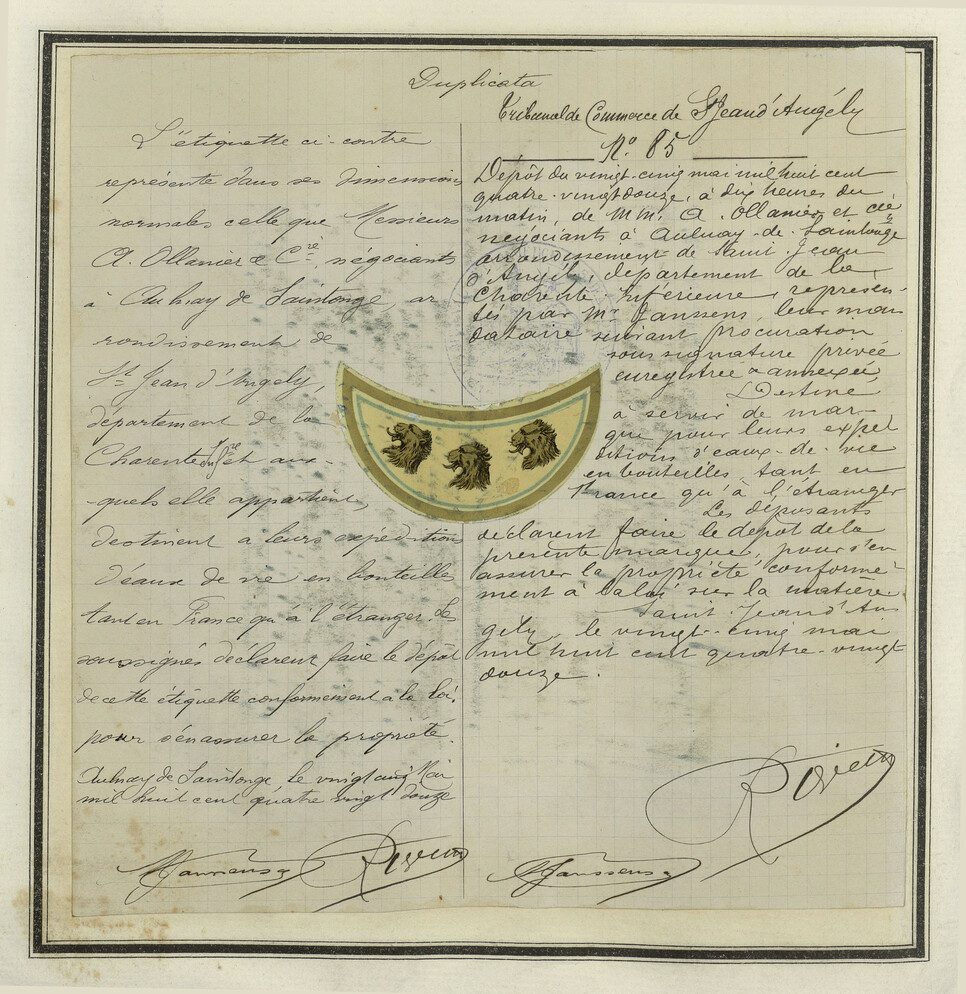 Duplicata
L'étiquette ci-contre
représente dans ses dimensions
normales celle que Messieurs
A. Ollanier & Cie, négociants
à Aulnay de Saintonge, ar
rondissement de
St Jean d'Angely,
département de la
Charente Infre et aux-
quels elle appartient,
destinent à leurs expéditions
d'eaux de vie en bouteilles
tant en France qu'à l'étranger. Les
soussignés déclarent faire le dépôt
de cette étiquette conformément à la loi,
pour s'en assurer la propriété.
Aulnay de Saintonge le vingt cinq Mai
mil huit cent quatre vingt douze
Janssens Rivet
Tribunal de Commerce de St Jean d'Angély
No 85
Dépôt du vingt-cinq mai mil huit cent
quatre-vingt douze, à dix heures du
matin, de MM. A. Ollanier et Cie
négociants à Aulnay-de-Saintonge
arrondissement de Saint-Jean
d'Angély, département de la
Charente-Inférieure, représen-
tés par Mr Janssens, leur man
dataire suivant procuration
sous signature privée
enregistrée & annexée,
Destiné
à servir de mar-
que pour leurs expé
ditions d'eaux-de-vie
en bouteilles, tant en
France qu'à l'étranger
Les déposants
déclarent faire le dépôt de la
présente marque, pour s'en
assurer la propriété conformé-
ment à la loi sur la matière
Saint-Jean d'An
gely, le vingt-cinq mai
mil huit cent quatre-vingt
douze.
Janssens